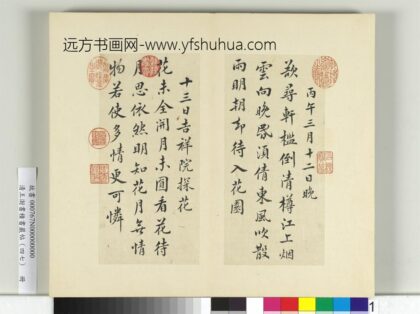 远方书画网-www.yfshuhua.com
丙午三月十二日晚
欲尋軒檻倒清樽江上烟
雲向晚昏須倩東風吹散
雨明朝却待入花園
十三日吉祥院探花
花未全開月未圓看花待
月思依然明知花月無情
物若使多情更可憐
故書 000767N000000000
1